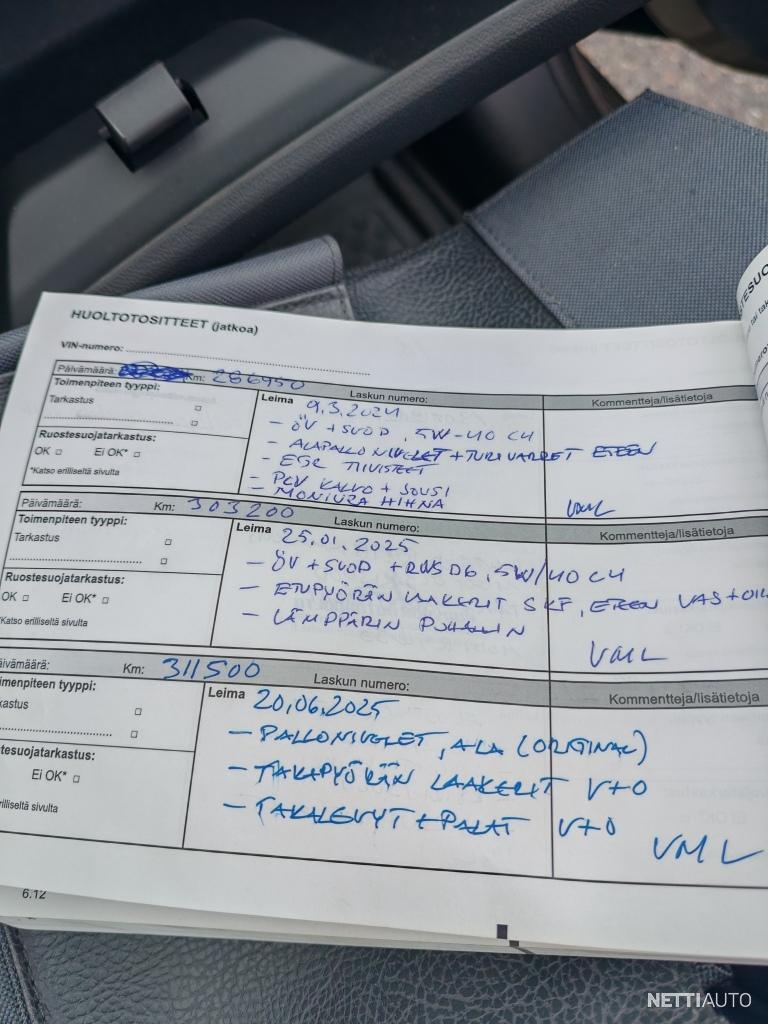 HUOLTOTOSITTEET (jatkoa)
VIN-numero:
Päivämäärä: Km: 286950 Laskun numero: Kommentteja/lisätietoja
Toimenpiteen tyyppi:
Tarkastus
Ruostesuojatarkastus:
OK Ei OK*
*Katso erilliseltä sivulta
Leima 9.3.2024
- ÖV + SUOD, 5W-40 C4
- ALAPALLONIVELET + TUKIVARRET ETEEN
- EGR TIIVISTEET
- PCV KALVO + JOUSI
MONIURA HIHNA
VML
Päivämäärä: Km: 303200 Laskun numero: Kommentteja/lisätietoja
Toimenpiteen tyyppi:
Tarkastus
Ruostesuojatarkastus:
OK Ei OK*
*Katso erilliseltä sivulta
Leima 25.01.2025
- ÖV + SUOD 5W/40 C4
- ETUPYÖRÄN LAAKERIT SKF, ETEEN VAS+OIK
- LÄMPPÄRIN PUHALLIN
VML
äivämäärä: Km: 311500 Laskun numero: Kommentteja/lisätietoja
imenpiteen tyyppi:
kastus
stesuojatarkastus:
Ei OK*
rilliseltä sivulta
Leima 20.06.2025
- PALLONIVELET, ALA (ORIGINAL)
- TAKAPYÖRÄN LAAKERIT V+O
- TAKALEVYT + PALAT V+O
VML
6.12
NETTIAUTO